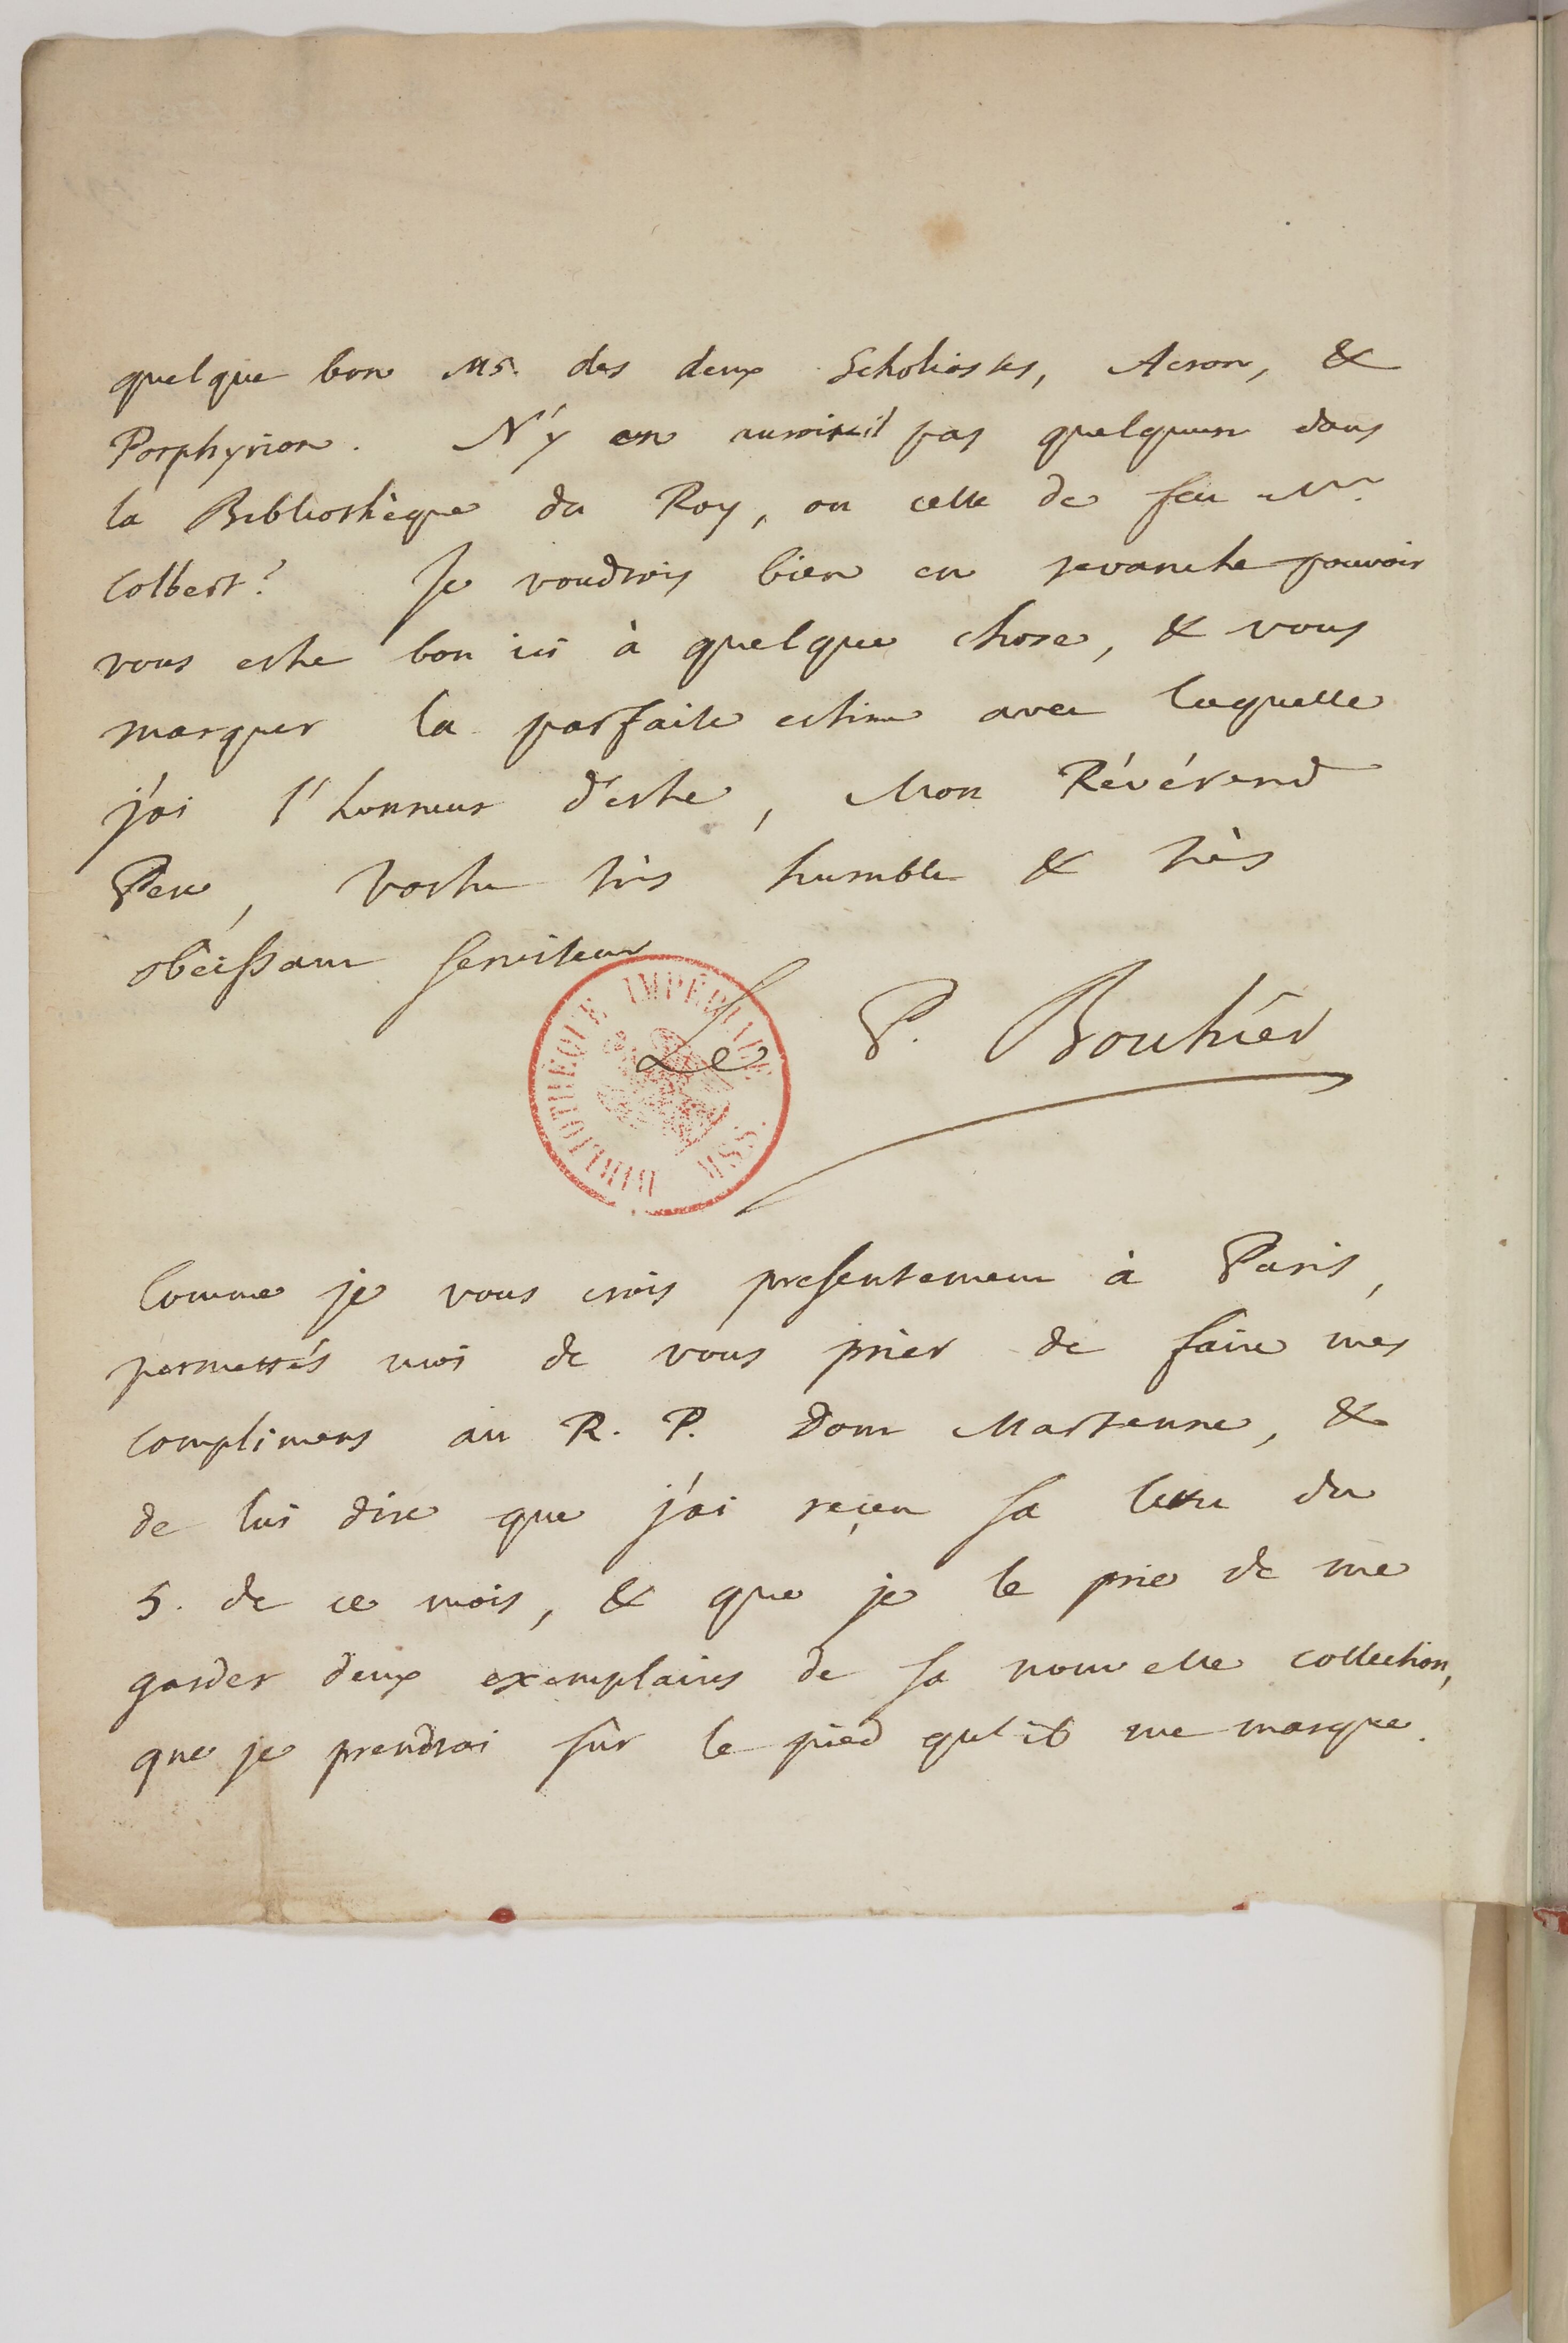 quelque bon MS. des deux Scholiastes, Acron, &
Porphyrion. N'y en auroit-il pas quelquun dans
la Bibliothèque du Roy, ou celle de feu Mr.
Colbert? Je voudrois bien en revanche pouvoir
vous estre bon ici à quelque chose, & vous
marquer la parfaite estime avec laquelle
j'ai l'honneur d'estre, Mon Révérend
Pere, Vostre très humble & très
obéissant serviteur
Le P. Bouhier
BIBLIOTHEQUE IMPÉRIALE MSS.
Comme je vous crois presentement à Paris,
permettés moi de vous prier de faire mes
complimens au R. P. Dom Martenne, &
de lui dire que j'ai reçeu sa lettre du
5. de ce mois, & que je le prie de me
garder deux exemplaires de sa nouvelle collection,
que je prendrai sur le pied qu'il me marque.